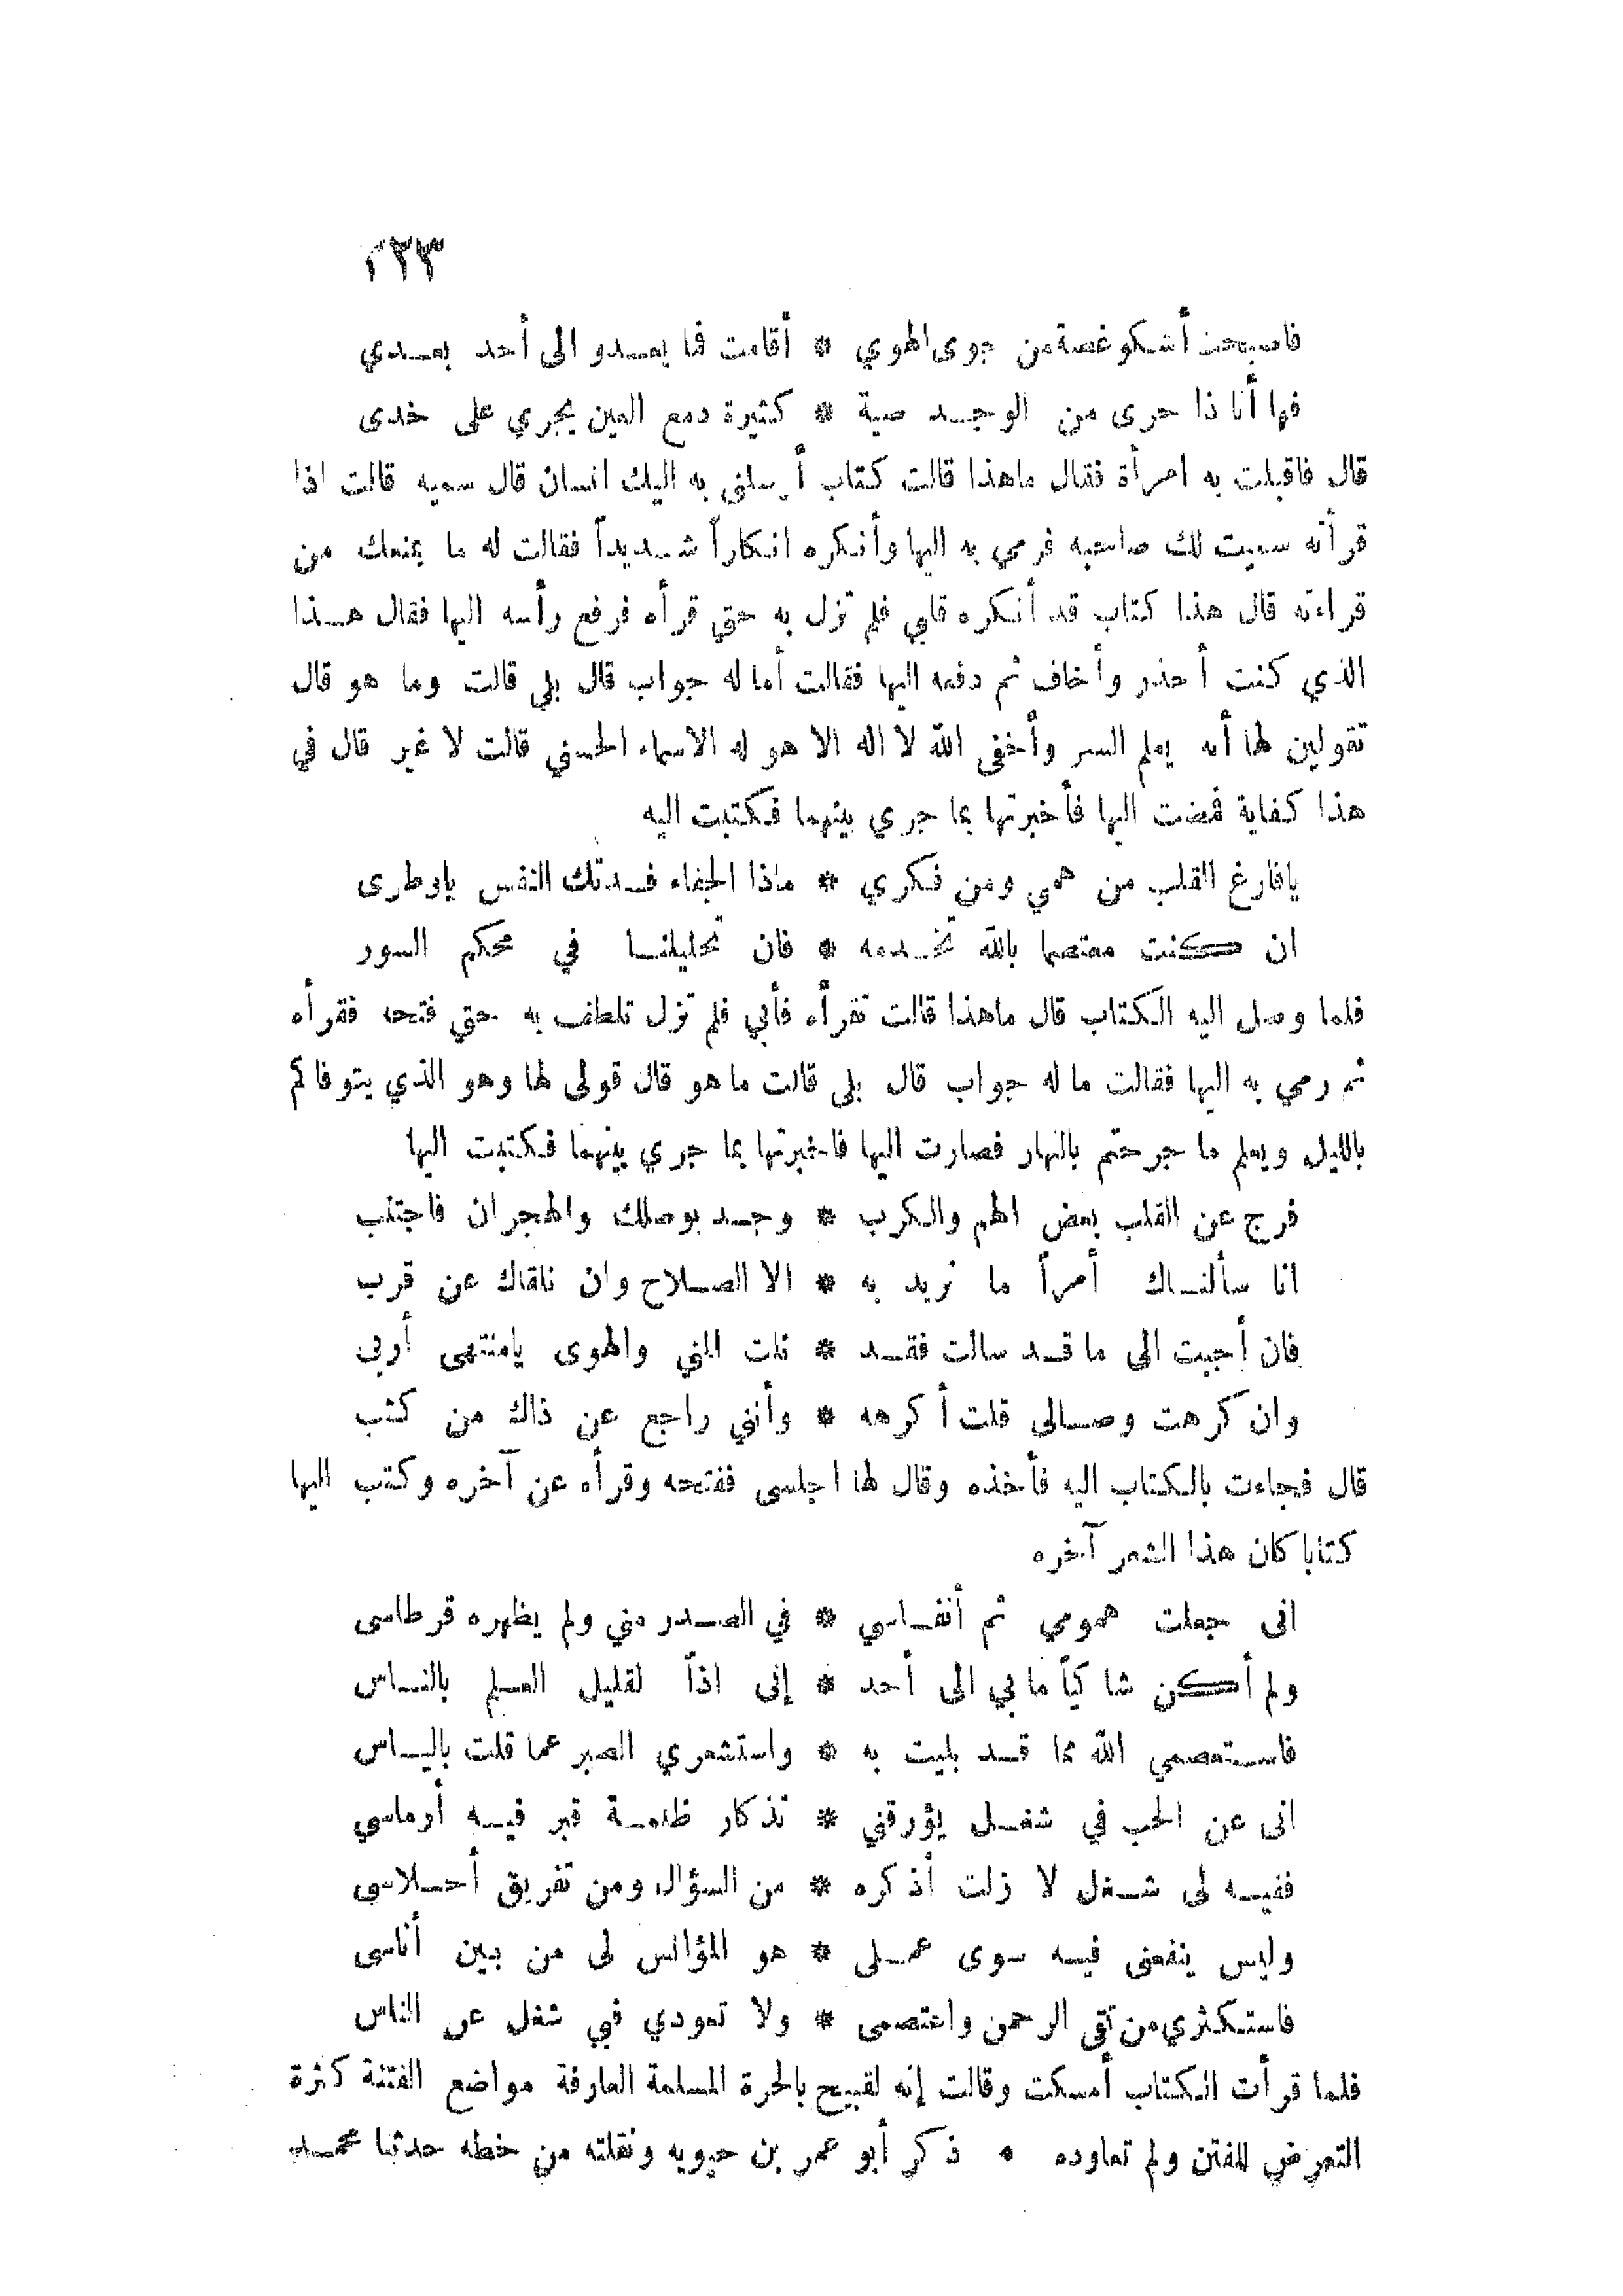 ٢٢٣
فاصبحت أشكو غصة من جوى الهوي * أقامت فما يعدو الى أحد بعدي
فها أنا ذا حرى من الوجد صبة * كثيرة دمع العين يجري على خدى
قال فاقبلت به امرأة فقال ماهذا قالت كتاب أرسلنى به اليك انسان قال سميه قالت اذا
قرأته سميت لك صاحبه فرمي به اليها وأنكره انكاراً شديداً فقالت له ما يمنعك من
قراءته قال هذا كتاب قد أنكره قلبي فلم تزل به حتي قرأه فرفع رأسه اليها فقال هذا
الذي كنت أحذر وأخاف ثم دفعه اليها فقالت أما له جواب قال بلى قالت وما هو قال
تقولين لها أنه يعلم السر وأخفى الله لا اله الا هو له الاسماء الحسني قالت لا غير قال في
هذا كفاية فمضت اليها فأخبرتها بما جري بينهما فكتبت اليه
يافارغ القلب من همي ومن فكري * ماذا الجفاء فدتك النفس ياوطرى
ان كنت معتصما بالله تخدمه * فان تحليلنا في محكم السور
فلما وصل اليه الكتاب قال ماهذا قالت تقرأه فأبي فلم تزل تلطف به حتي فتحه فقرأه
ثم رمي به اليها فقالت ما له جواب قال بلى قالت ما هو قال قولى لها وهو الذي يتوفاكم
بالليل ويعلم ما جرحتم بالنهار فصارت اليها فاخبرتها بما جري بينهما فكتبت اليها
فرج عن القلب بعض الهم والكرب * وجد بوصلك والهجران فاجتنب
انا سألناك أمراً ما نريد به * الا الصلاح وان نلقاك عن قرب
فان أجبت الى ما قد سالت فقد * نلت المني والهوى يامنتهى أربى
وان كرهت وصالى قلت أكرهه * وأنني راجع عن ذاك من كثب
قال فجاءت بالكتاب اليه فأخذه وقال لها اجلسى ففتحه وقرأه عن آخره وكتب اليها
كتابا كان هذا الشعر آخره
انى جعلت همومي ثم أنفاسي * في الصدر مني ولم يظهره قرطاسى
ولم أكن شاكياً ما بي الى أحد * إنى اذاً لقليل العلم بالناس
فاستعصمي الله مما قد بليت به * واستشعري الصبر عما قلت بالياس
انى عن الحب في شغل يؤرقني * تذكار ظلمة قبر فيه أرماسي
ففيه لى شغل لا زلت أذكره * من السؤال ومن تفريق أحلاسى
وليس ينفعنى فيه سوى عملى * هو المؤانس لى من بين أناسى
فاستكثري من تقى الرحمن واعتصمى * ولا تعودي فبي شغل عن الناس
فلما قرأت الكتاب أمسكت وقالت إنه لقبيح بالحرة المسلمة العارفة مواضع الفتنة كثرة
التعرض للفتن ولم تعاوده • ذكر أبو عمر بن حيويه ونقلته من خطه حدثنا محمد